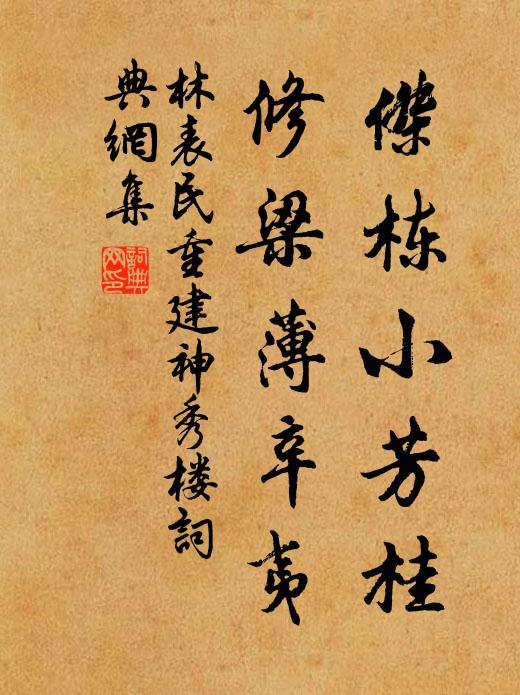 傑栋小芳桂
修梁薄辛夷
林表民重建神秀楼詞
典網集
詞典
网印